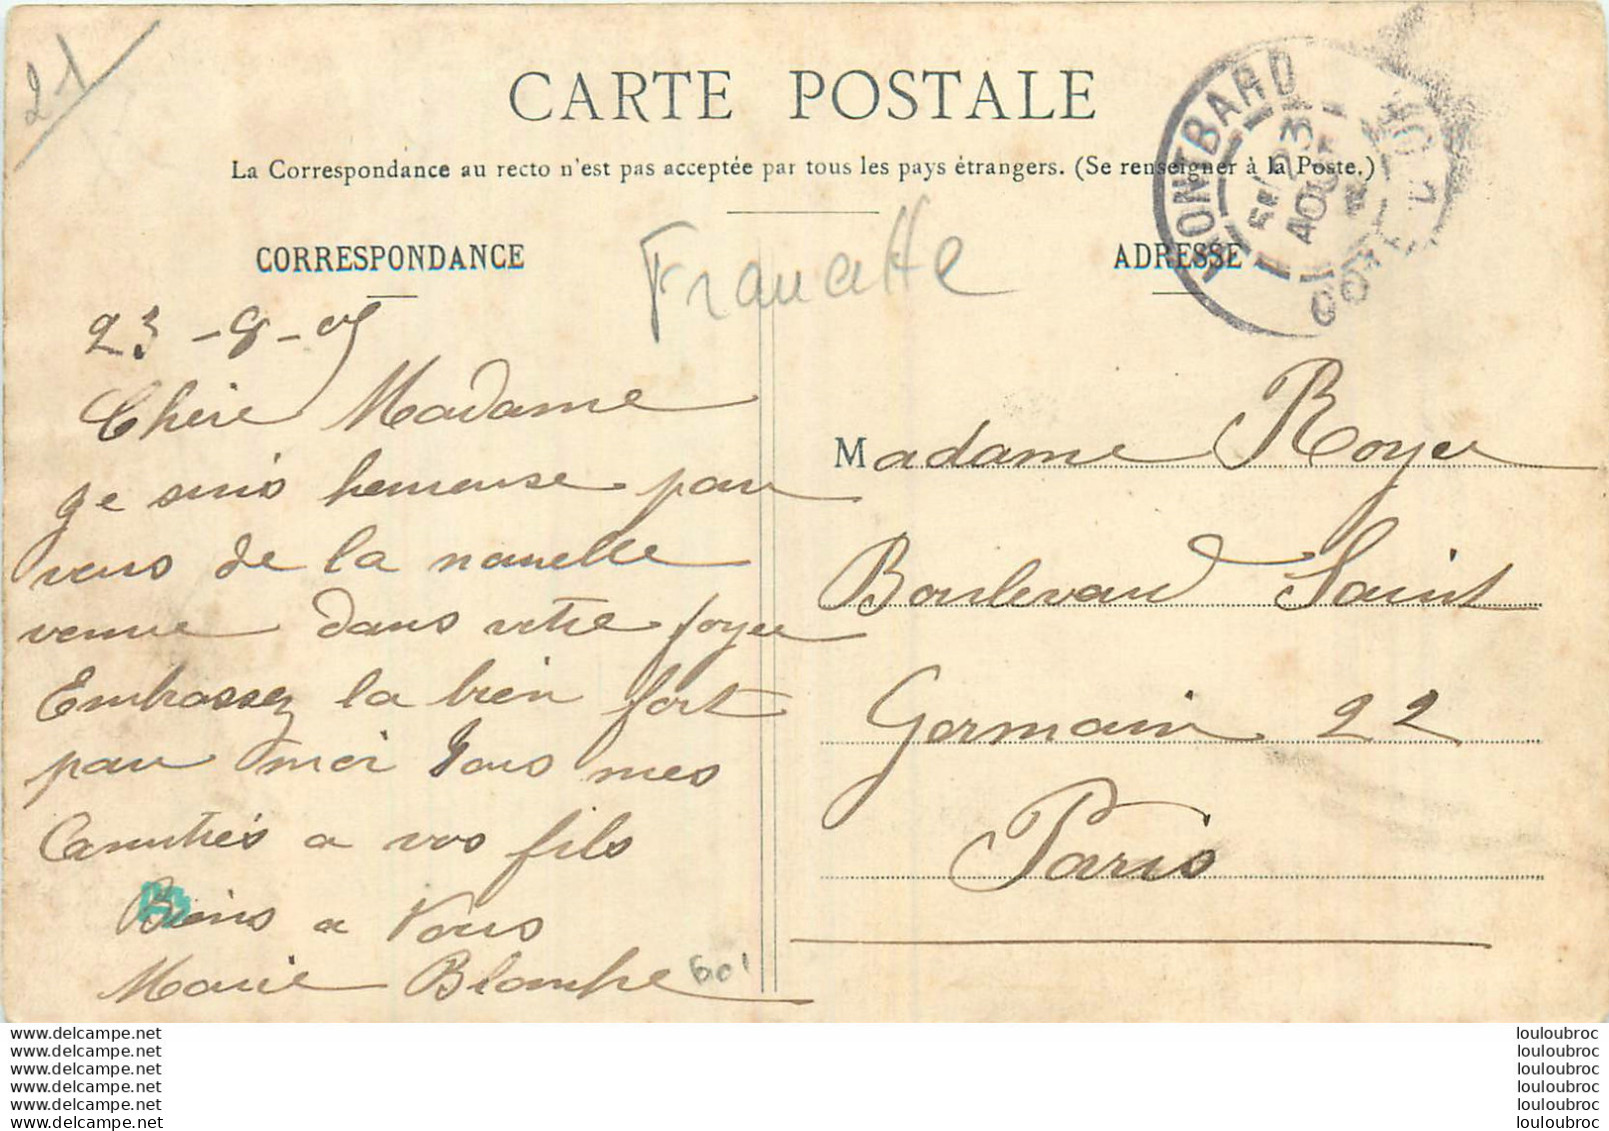 21
CARTE POSTALE
La Correspondance au recto n'est pas acceptée par tous les pays étrangers. (Se renseigner à la Poste.)
MONTBARD
23
AOUT
COTE D'OR
CORRESPONDANCE
ADRESSE
23 - 8 - 05
Chère Madame
je suis heureuse pour
vous de la nouvelle
venue dans votre foyer
Embrassez la bien fort
pour moi Tous mes
Amitiés a vos fils
Biens a Vous
Marie Blanche
60'
Madame Royer
Boulevard Saint
Germain 22
Paris
www.delcampe.net
www.delcampe.net
www.delcampe.net
www.delcampe.net
www.delcampe.net
www.delcampe.net
louloubroc
louloubroc
louloubroc
louloubroc
louloubroc
louloubroc